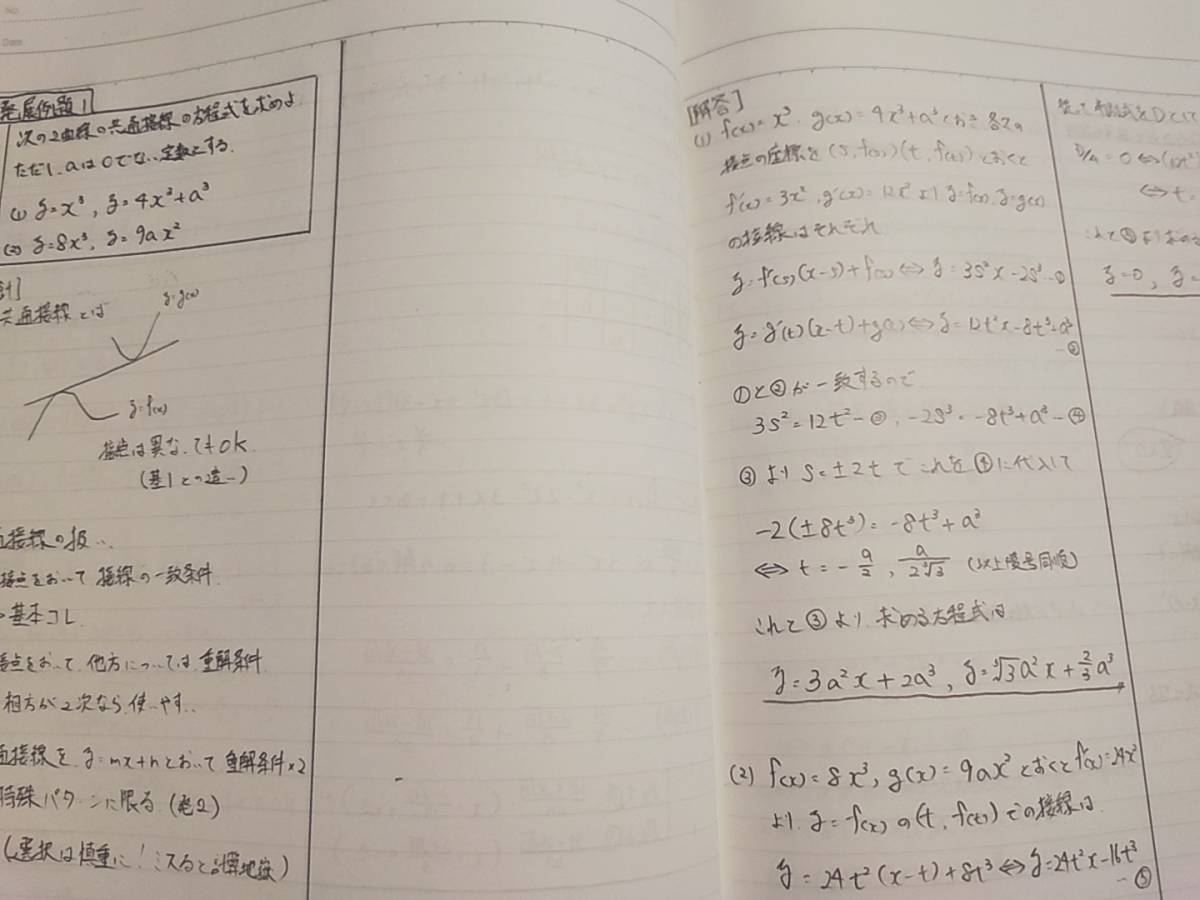 No.
Date
発展例題1
次の2曲線の共通接線の方程式を求めよ
ただし、aは0でない定数とする.
(1) y=x³, y=4x³+a³
(2) y=8x³, y=9ax²
共通接線とは
y=g(x)
y=f(x)
接点は異なってもok
(基1との違い)
接線の扱い
接点をおいて 接線の一致条件
基本コレ
接点をおいて、他方については 重解条件
相方が2次なら使いやすい
接線を y=mx+nとおいて 重解条件×2
特殊パターンに限る (発2)
(選択は慎重に! ミスると計算地獄)
[解答]
(1) f(x)=x³, g(x)=4x³+a³とおき 各々の
接点の座標を (s, f(s)) (t, f(t)) とおくと
f'(x)=3x², g'(x)=12x² より y=f(x), y=g(x)
の接線はそれぞれ
y=f'(s)(x-s)+f(s) ⇔ y=3s²x-2s³ -①
y=g'(t)(x-t)+g(t) ⇔ y=12t²x-8t³+a³
-②
①と②が一致するので
3s²=12t² -③, -2s³=-8t³+a³ -④
③より s=±2t で これを④に代入して
-2(±8t³)=-8t³+a³
⇔ t=-a/2, a/2∛3 (以上複号同順)
これと③より、求める方程式は
y=3a²x+2a³, y=∛3a²x+2/3a³
(2) f(x)=8x³, g(x)=9ax² とおくと f'(x)=24x²
より、y=f(x)の(t, f(t))での接線は
y=24t²(x-t)+8t³ ⇔ y=24t²x-16t³
-⑤
D/4=0 ⇔
⇔ t=
これと⑤より求める
y=0, y=